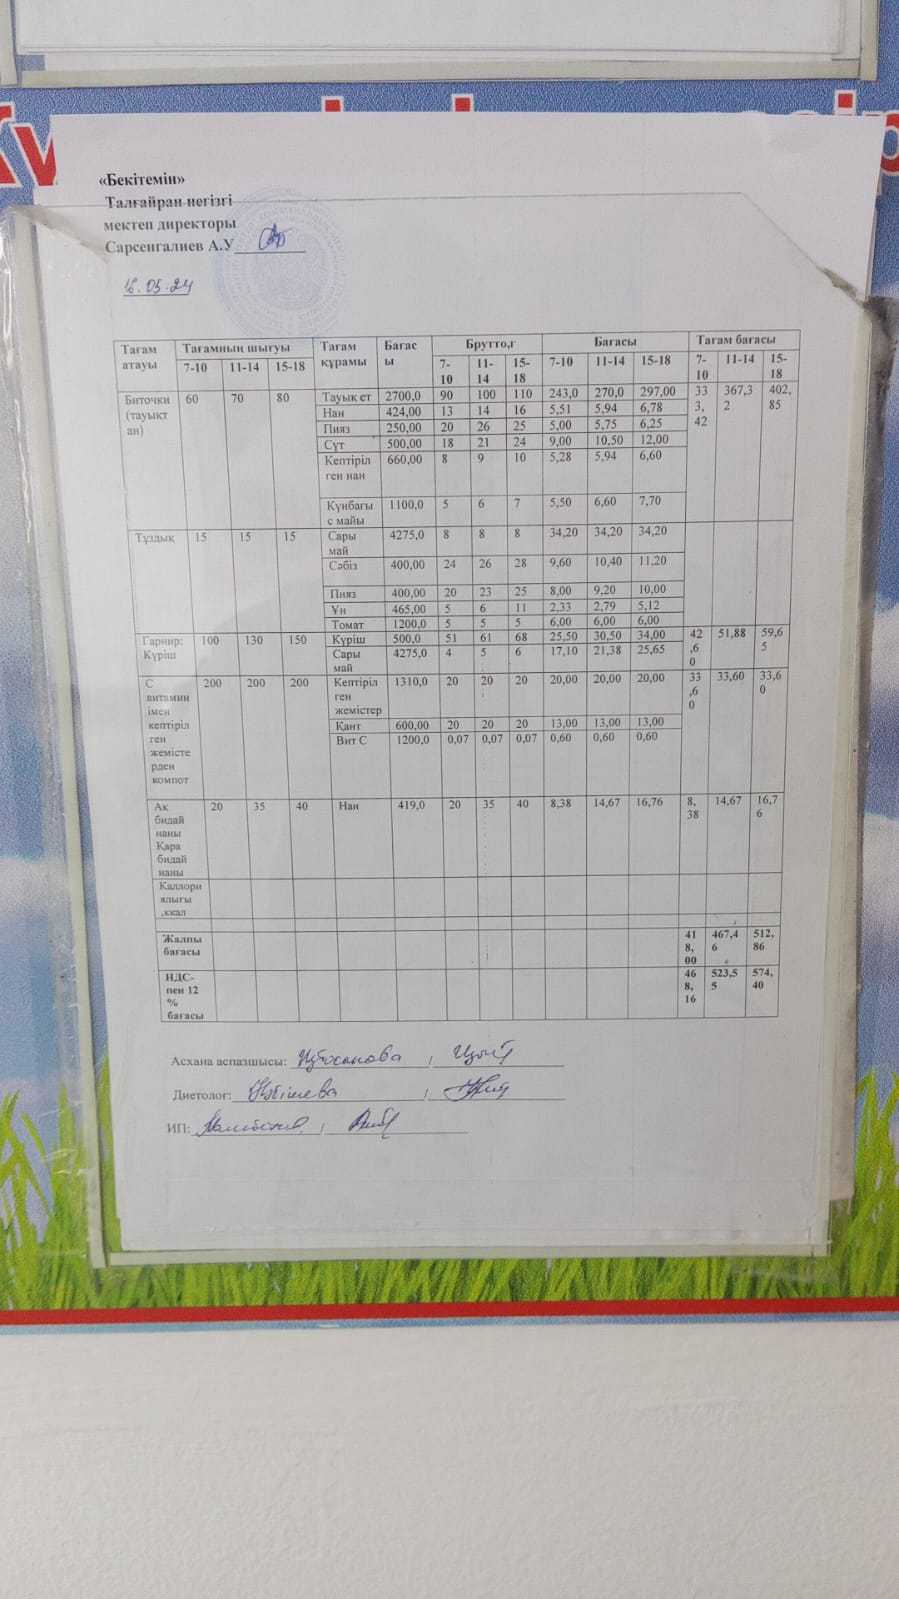 «Бекітемін»
Талғайран негізгі
мектеп директоры
Сарсенгалиев А.У
16.05.24
Тағам атауы Тағамның шығуы Тағам құрамы Бағасы Брутто,г Бағасы Тағам бағасы
7-10 11-14 15-18 7-10 11-14 15-18 7-10 11-14 15-18 7-10 11-14 15-18
Биточки (тауықтан) 60 70 80 Тауық ет 2700,0 90 100 110 243,0 270,0 297,00 333,42 367,32 402,85
Нан 424,00 13 14 16 5,51 5,94 6,78
Пияз 250,00 20 26 25 5,00 5,75 6,25
Сүт 500,00 18 21 24 9,00 10,50 12,00
Кептірілген нан 660,00 8 9 10 5,28 5,94 6,60
Күнбағыс майы 1100,0 5 6 7 5,50 6,60 7,70
Тұздық 15 15 15 Сары май 4275,0 8 8 8 34,20 34,20 34,20
Сәбіз 400,00 24 26 28 9,60 10,40 11,20
Пияз 400,00 20 23 25 8,00 9,20 10,00
Ұн 465,00 5 6 11 2,33 2,79 5,12
Томат 1200,0 5 5 5 6,00 6,00 6,00
Гарнир: Күріш 100 130 150 Күріш 500,0 51 61 68 25,50 30,50 34,00 42,60 51,88 59,65
Сары май 4275,0 4 5 6 17,10 21,38 25,65
С витаминімен кептірілген жемістерден компот 200 200 200 Кептірілген жемістер 1310,0 20 20 20 20,00 20,00 20,00 33,60 33,60 33,60
Қант 600,00 20 20 20 13,00 13,00 13,00
Вит С 1200,0 0,07 0,07 0,07 0,60 0,60 0,60
Ақ бидай наны Қара бидай наны 20 35 40 Нан 419,0 20 35 40 8,38 14,67 16,76 8,38 14,67 16,76
Каллориялығы,ккал
Жалпы бағасы 418,00 467,46 512,86
НДС-пен 12 % бағасы 468,16 523,55 574,40
Асхана аспазшысы:
Диетолог:
ИП: